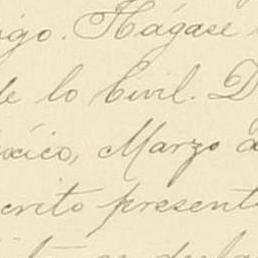 igo. Hágase
de lo Civil. D
éxico, Marzo d
crito present